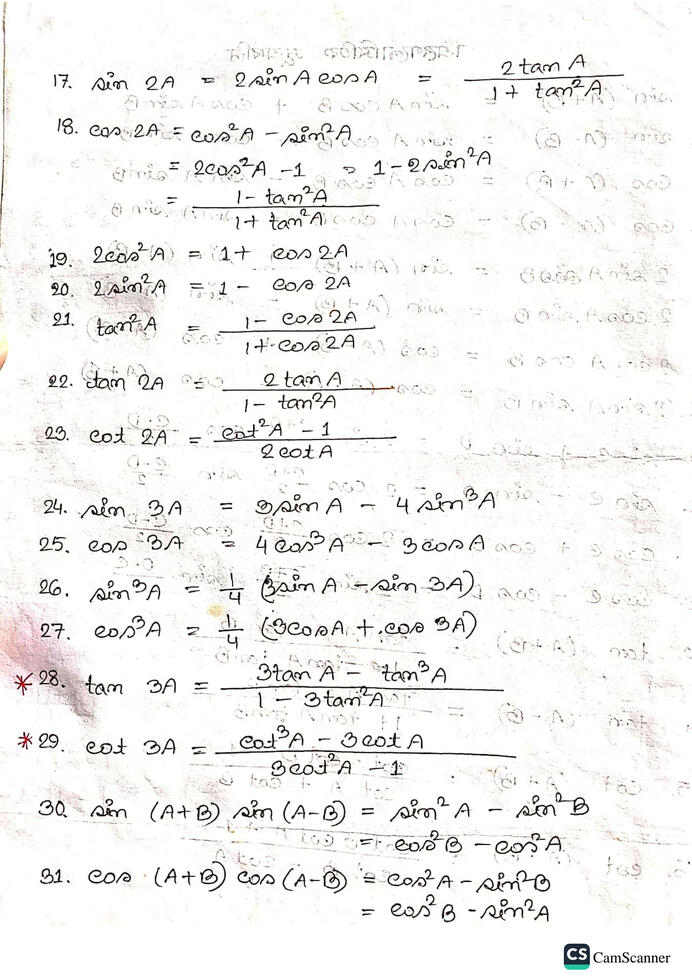 17. sin 2A = 2 sin A cos A = 2 tan A / 1 + tan²A
18. cos 2A = cos²A - sin²A
= 2cos²A - 1 = 1 - 2 sin²A
= 1 - tan²A / 1 + tan²A
19. 2cos²A = 1 + cos 2A
20. 2 sin²A = 1 - cos 2A
21. tan²A = 1 - cos 2A / 1 + cos 2A
22. tan 2A = 2 tan A / 1 - tan²A
23. cot 2A = cot²A - 1 / 2 cot A
24. sin 3A = 3 sin A - 4 sin³A
25. cos 3A = 4 cos³A - 3 cos A
26. sin³A = 1/4 (3 sin A - sin 3A)
27. cos³A = 1/4 (3 cos A + cos 3A)
* 28. tan 3A = 3 tan A - tan³A / 1 - 3 tan²A
* 29. cot 3A = cot³A - 3 cot A / 3 cot²A - 1
30. sin (A+B) sin (A-B) = sin²A - sin²B
= cos²B - cos²A
31. cos (A+B) cos (A-B) = cos²A - sin²B
= cos²B - sin²A
CS CamScanner